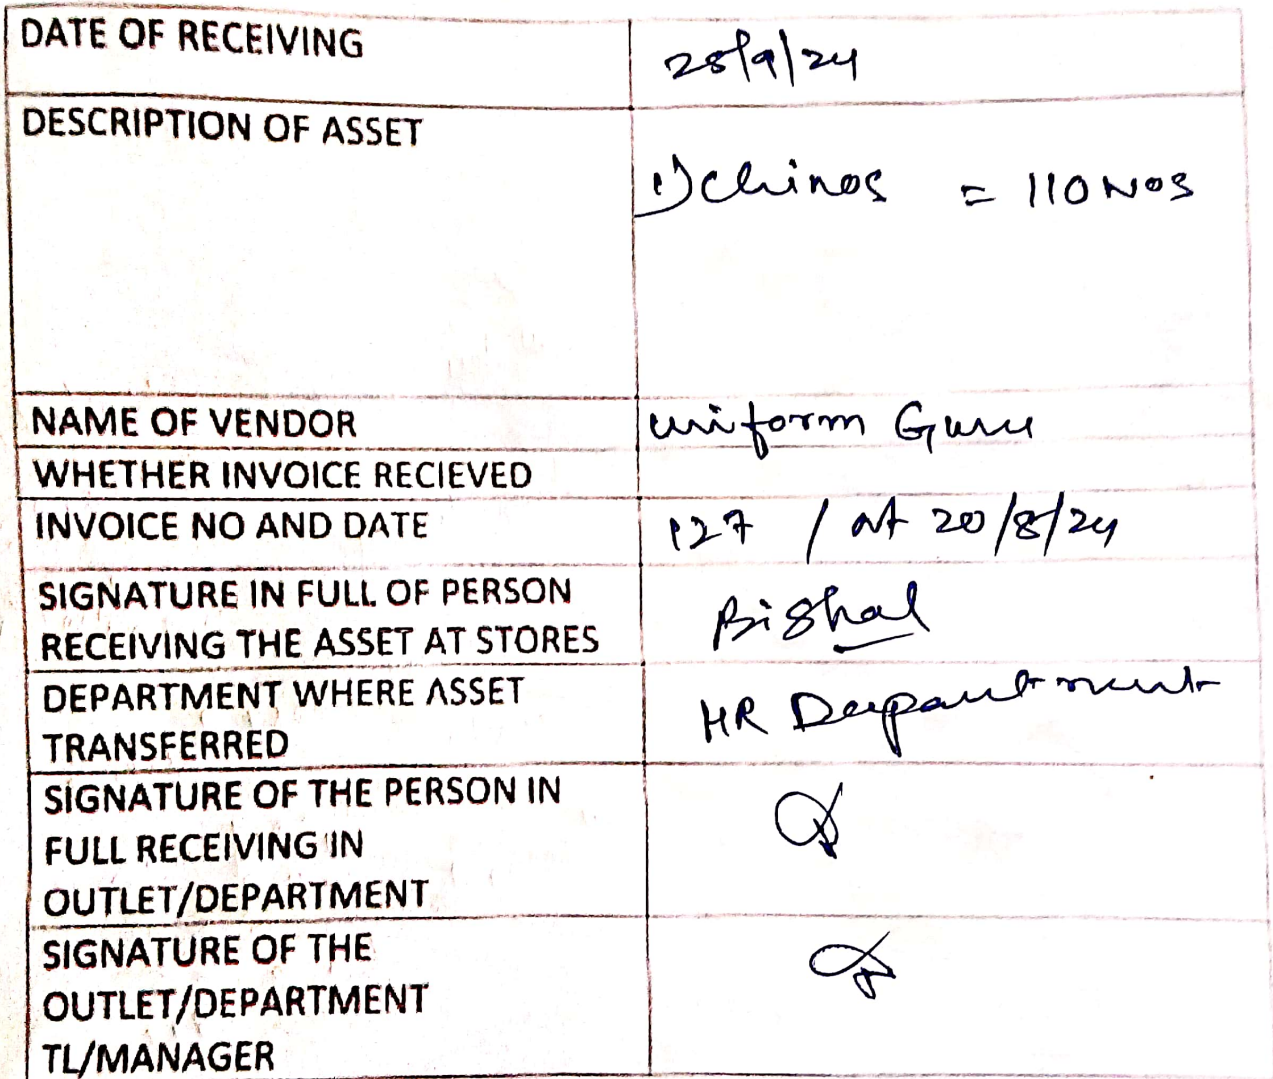 DATE OF RECEIVING
28/9/24
DESCRIPTION OF ASSET
1) Chinos = 110 Nos
NAME OF VENDOR
uniform Guru
WHETHER INVOICE RECIEVED
INVOICE NO AND DATE
127 / dt 20/8/24
SIGNATURE IN FULL OF PERSON
RECEIVING THE ASSET AT STORES
Bishal
DEPARTMENT WHERE ASSET
TRANSFERRED
HR Department
SIGNATURE OF THE PERSON IN
FULL RECEIVING IN
OUTLET/DEPARTMENT
SIGNATURE OF THE
OUTLET/DEPARTMENT
TL/MANAGER